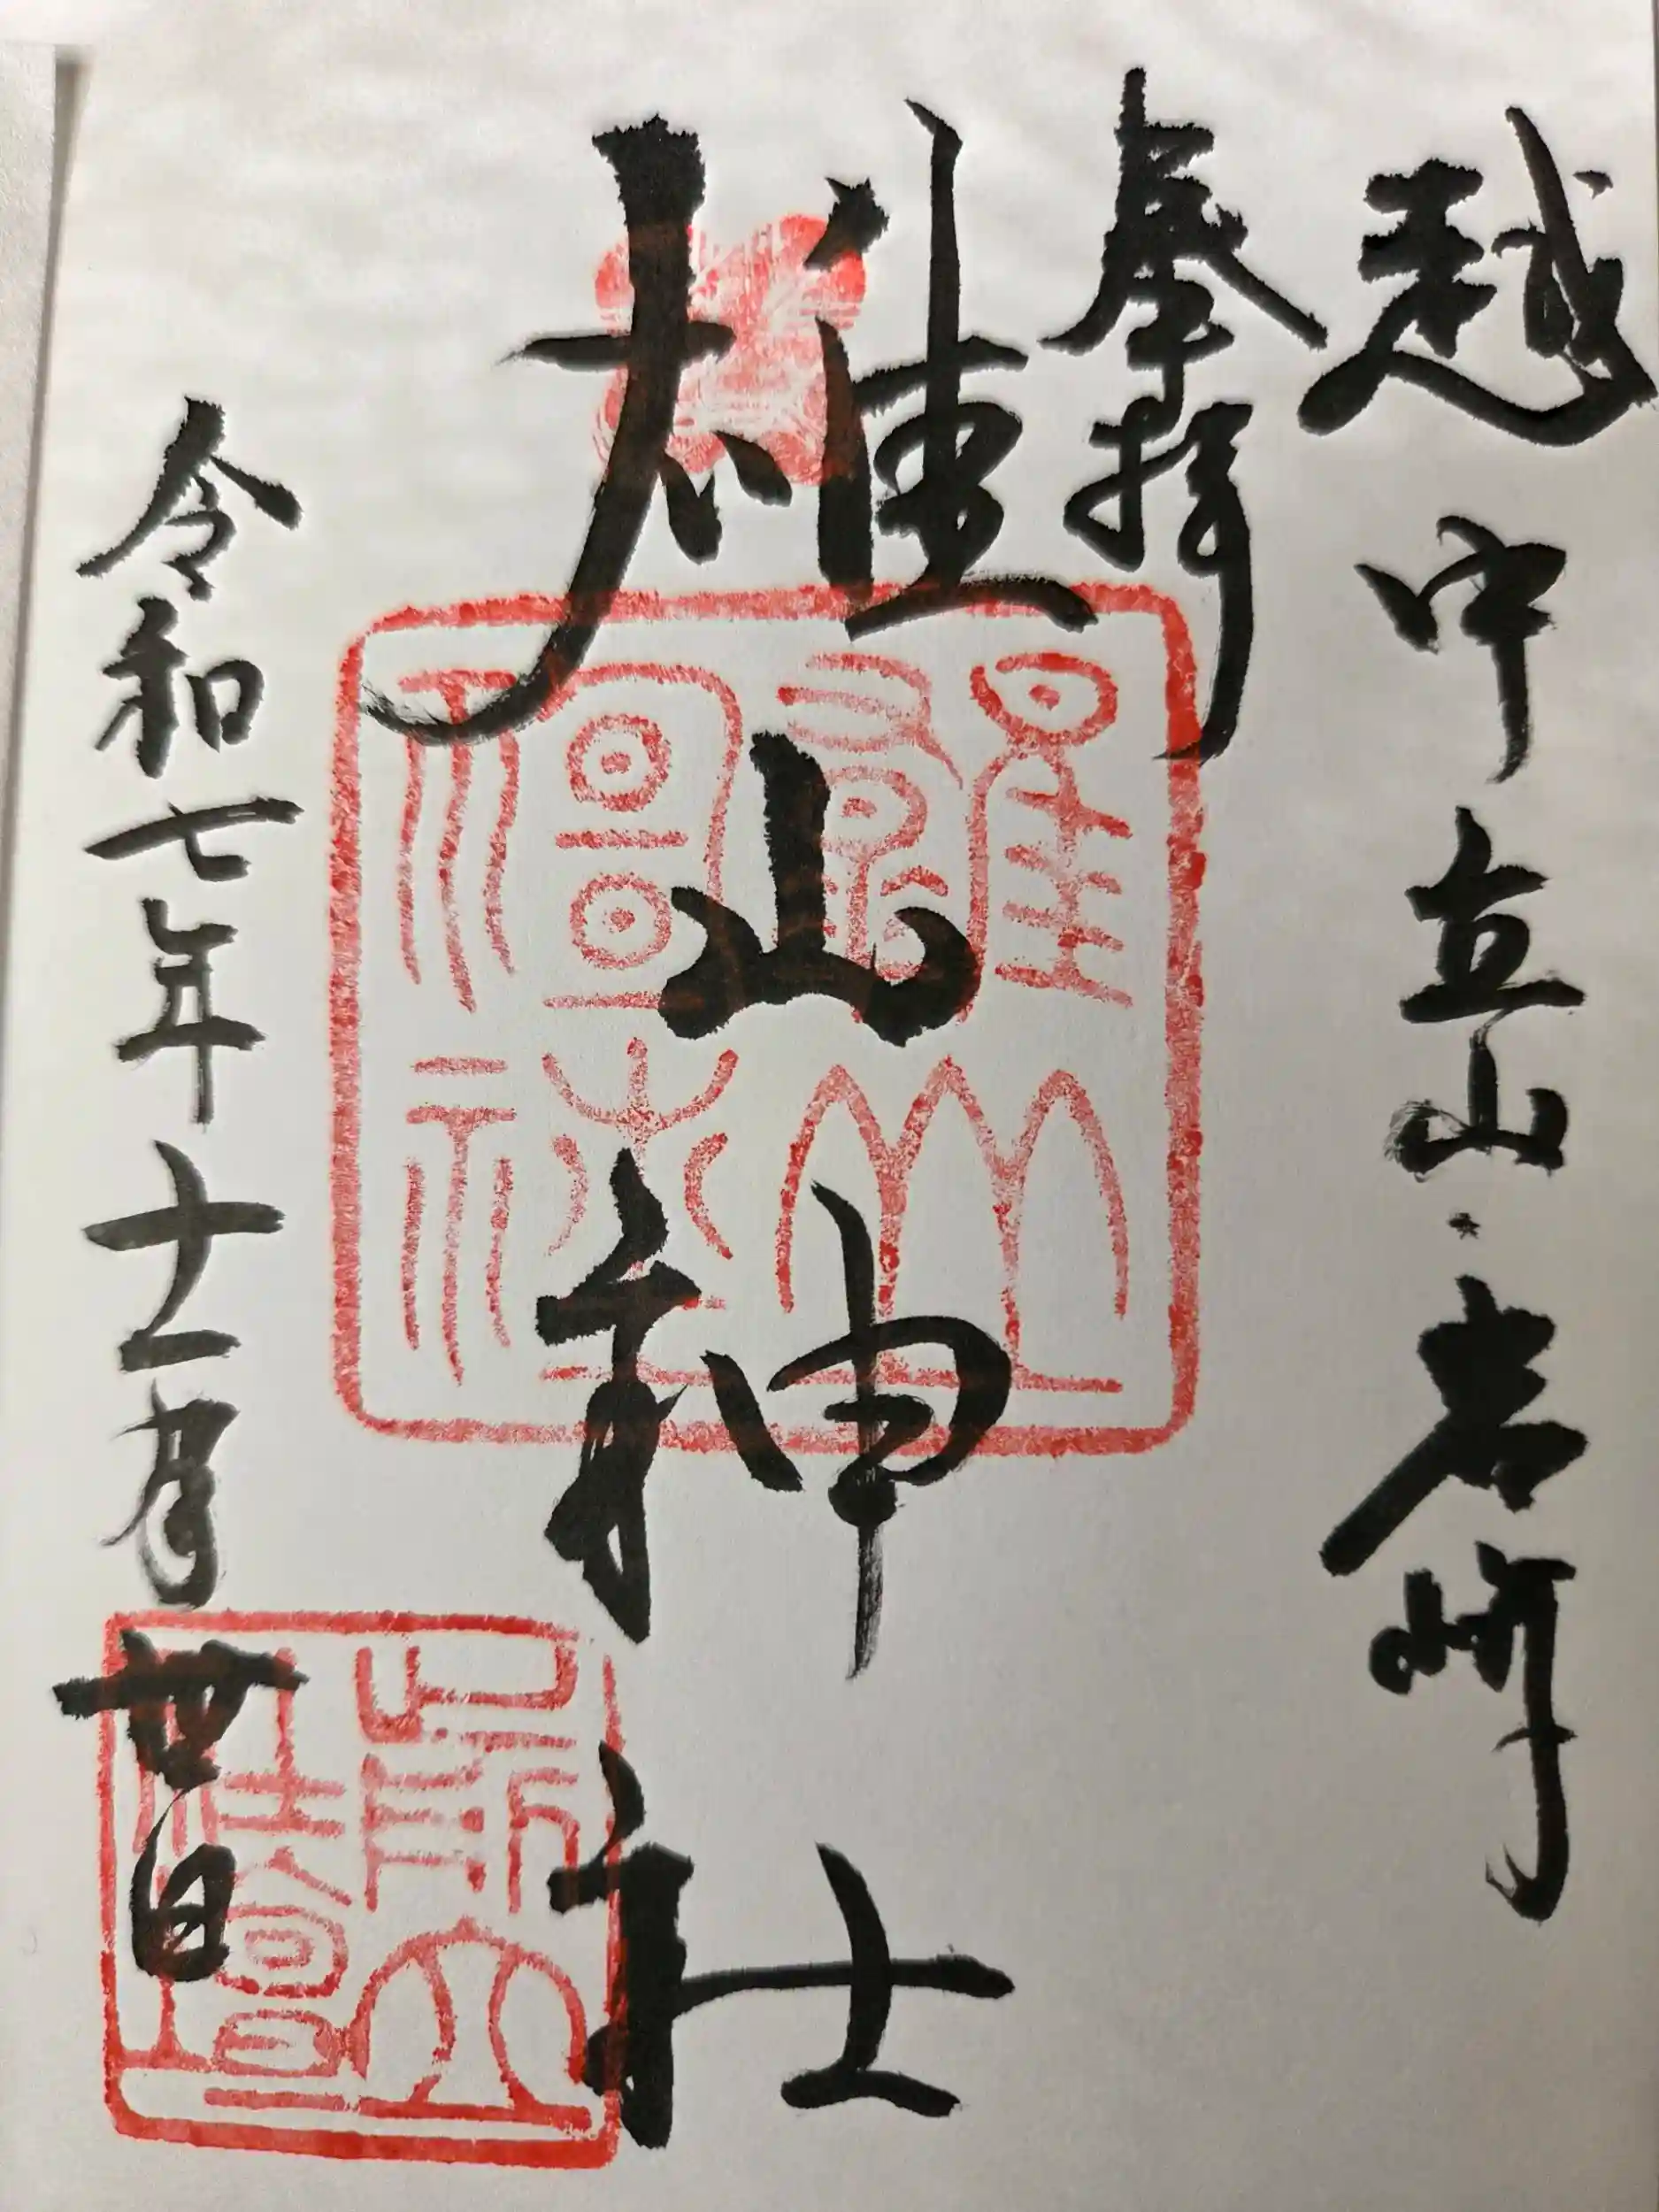 越中立山・岩峅
奉拝
雄山神社
令和七年十一月廿日